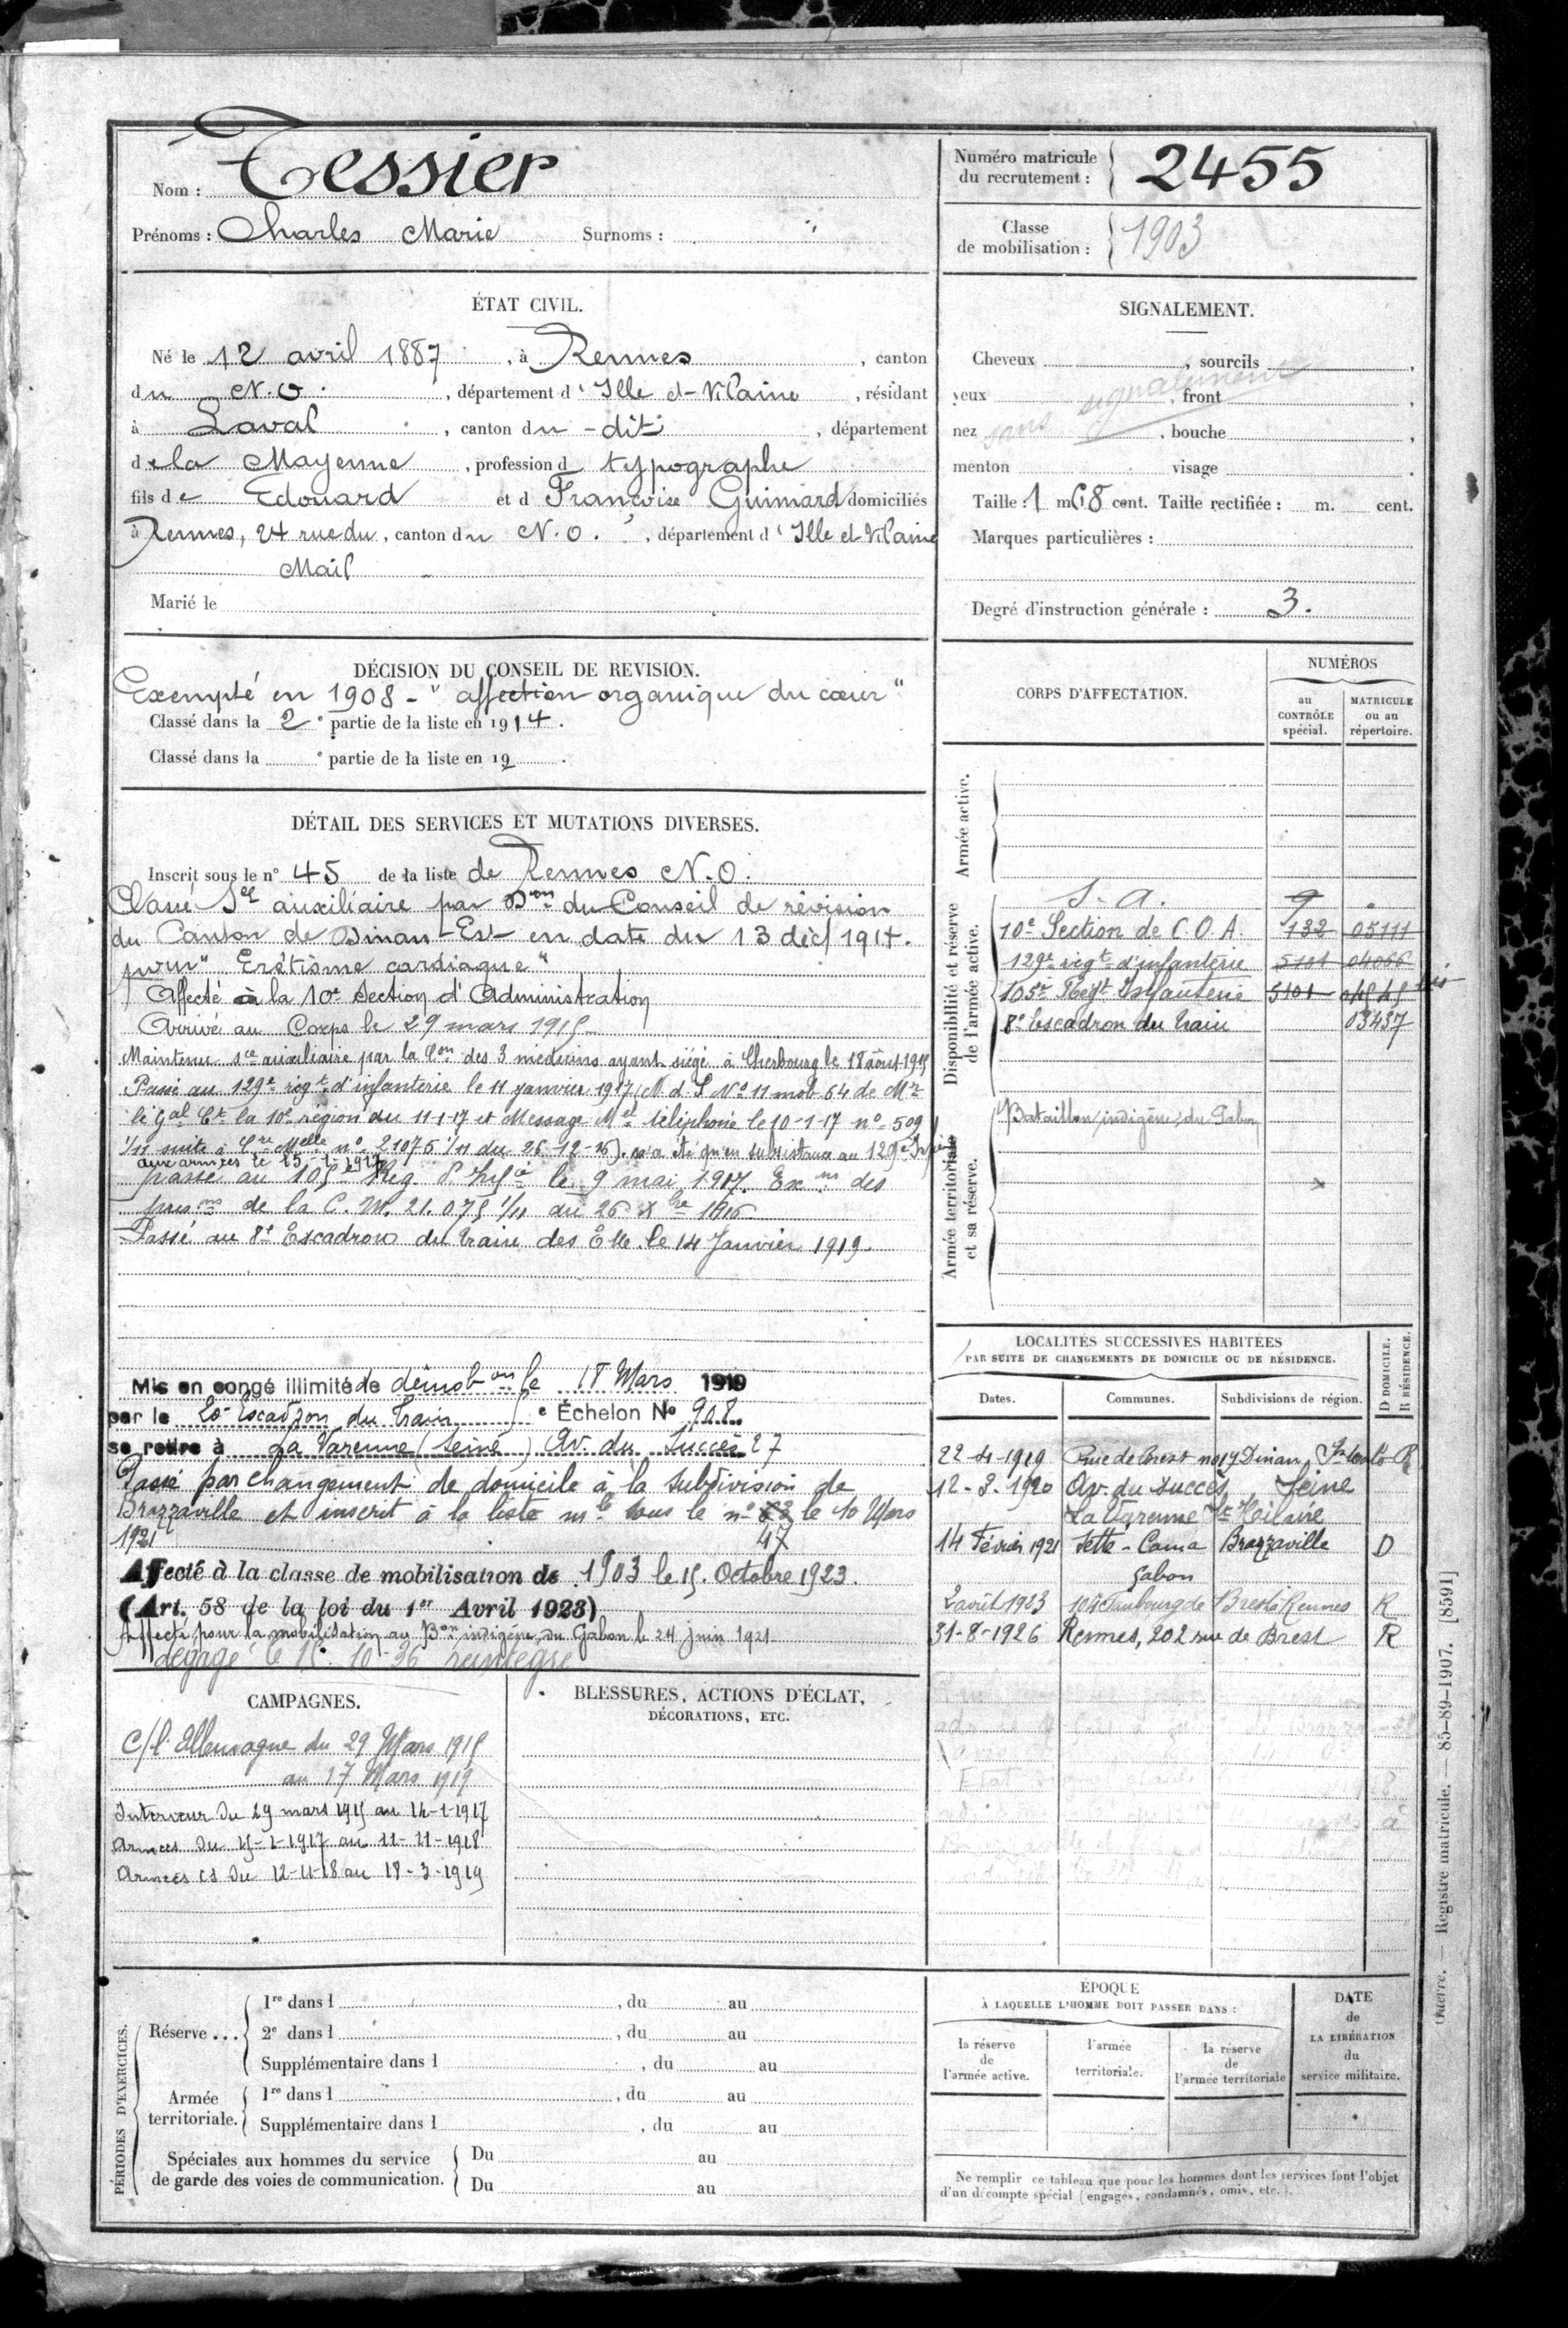 Nom : Tessier
Prénoms : Charles Marie Surnoms : "
Numéro matricule
du recrutement : 2455
Classe
de mobilisation : 1903
ÉTAT CIVIL.
Né le 12 avril 1887, à Rennes, canton
du N.O., département d'Ille et-Vilaine, résidant
à Laval, canton du -dit, département
de la Mayenne, profession d typographe
fils de Edouard et d Françoise Guimard domiciliés
à Rennes, 24 rue du, canton du N.O., département d'Ille et Vilaine
Mail
Marié le
SIGNALEMENT.
Cheveux , sourcils ,
yeux , front ,
sans signalement
nez , bouche ,
menton visage .
Taille : 1 m 68 cent. Taille rectifiée : m. cent.
Marques particulières :
Degré d'instruction générale : 3.
DÉCISION DU CONSEIL DE REVISION.
Exempté en 1908 - "affection organique du cœur"
Classé dans la 2e partie de la liste en 1914.
Classé dans la e partie de la liste en 19 .
DÉTAIL DES SERVICES ET MUTATIONS DIVERSES.
Inscrit sous le n° 45 de la liste de Rennes N.O.
Classé Sce auxiliaire par Don du Conseil de révision
du Canton de Dinan-Est en date du 13 déc/ 1914.
pour "Eréthisme cardiaque"
Affecté à la 10e Section d'Administration
Arrivé au Corps le 29 mars 1915
Maintenu sce auxiliaire par la Con des 3 médecins ayant siégé à Cherbourg le 18 août 1915
Passé au 129e régt d'infanterie le 11 janvier 1917 (N. d. S N° 11 mob 64 de Mr
le Gal Ct la 10e région du 11-1-17 et Message Mel téléphoné le 10-1-17 n° 509
1/11 suite à Cre Melle n° 21075 1/11 du 26-12-16). n'a été qu'en subsistance au 129e
aux armées le 15-1-1917
passé au 105e Reg d'Infie le 9 mai 1917. Exon des
preson de la C. M. 21.075 1/11 du 26 Xbre 1916
Passé au 8e Escadron du train des Ė le 14 Janvier 1919.
Mis en congé illimité de démobon le 18 Mars 1919
par le 20e Escadron du Train e Échelon N° 908
se retire à La Varenne (Seine) Av. du Succès 27
Passé par changement de domicile à la subdivision de
Brazzaville et inscrit à la liste mle sous le n° 63 le 10 Mars
1921 47
Affecté à la classe de mobilisation de 1903 le 15. Octobre 1923.
(Art. 58 de la loi du 1er Avril 1923)
Affecté pour la mobilisation au Bon indigène du Gabon le 24 juin 1921
dégagé le 15.10-36 réintégré
CORPS D'AFFECTATION.
NUMÉROS
au
CONTRÔLE
spécial.
MATRICULE
ou au
répertoire.
Armée active.
Disponibilité et réserve
de l'armée active.
S. A. 9
10e Section de C.O.A. 132 05111
129e régt d'infanterie 5101 04066
105e Regt Infanterie 5101 04545 bis
8e Escadron du train 03437
Armée territoriale
et sa réserve.
Bataillon indigène du Gabon
LOCALITÉS SUCCESSIVES HABITÉES
PAR SUITE DE CHANGEMENTS DE DOMICILE OU DE RÉSIDENCE.
Dates. Communes. Subdivisions de région.
D DOMICILE.
R RÉSIDENCE.
22-4-1919 Rue de Brest no 17 Dinan, St Malo R
12-3-1920 Av. du Succès, Seine
La Varenne St Hilaire
14 Février 1921 Sette-Cama Brazzaville D
Gabon
2 août 1923 104 Faubourg de Brest Rennes R
31-8-1926 Rennes, 202 rue de Brest R
CAMPAGNES.
C/ l'Allemagne du 29 Mars 1915
au 17 Mars 1919
Intérieur du 29 mars 1915 au 14-1-1917
Armées du 15-1-1917 au 11-11-1918
Armées CS du 12-11-18 au 18-3-1919
BLESSURES, ACTIONS D'ÉCLAT,
DÉCORATIONS, ETC.
PÉRIODES D'EXERCICES.
Réserve ...
1re dans l , du au
2e dans l , du au
Supplémentaire dans l , du au
Armée
territoriale.
1re dans l , du au
Supplémentaire dans l , du au
Spéciales aux hommes du service
de garde des voies de communication.
Du au
Du au
ÉPOQUE
À LAQUELLE L'HOMME DOIT PASSER DANS :
la réserve
de
l'armée active.
l'armée
territoriale.
la réserve
de
l'armée territoriale
DATE
de
LA LIBÉRATION
du
service militaire.
Ne remplir ce tableau que pour les hommes dont les services font l'objet
d'un décompte spécial (engagés, condamnés, omis, etc.).
Guerre. — Registre matricule. — 85-89-1907. [8591]